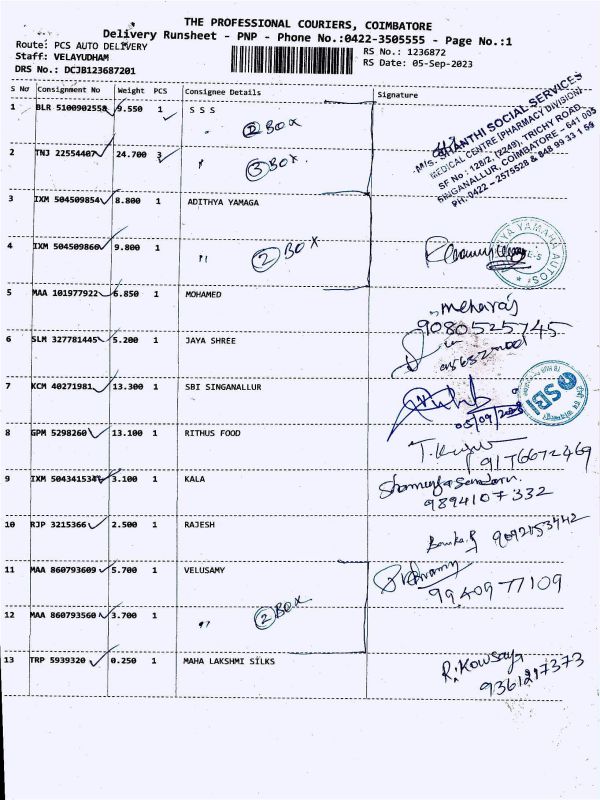 THE PROFESSIONAL COURIERS, COIMBATORE
Delivery Runsheet - PNP - Phone No.:0422-3505555 - Page No.:1
Route: PCS AUTO DELIVERY
RS No.: 1236872
Staff: VELAYUDHAM
RS Date: 05-Sep-2023
DRS No.: DCJB123687201
S No Consignment No Weight PCS Consignee Details Signature
1 BLR 5100902558 9.550 1 S S S
② BOX
2 TNJ 22554407 24.700 3 "
③ BOX
M/s. SHANTHI SOCIAL SERVICES
MEDICAL CENTRE (PHARMACY DIVISION)
SF No : 128/2, (2249), TRICHY ROAD,
SINGANALLUR, COIMBATORE - 641 005
PH: 0422 - 2575528 & 848 99 33 1 55
3 IXM 504509854 8.800 1 ADITHYA YAMAGA
4 IXM 504509860 9.800 1 "
② BOX
YAMAHA AUTOS
5 MAA 101977922 6.850 1 MOHAMED
9080525745
6 SLM 327781445 5.200 1 JAYA SHREE
7 KCM 40271981 13.300 1 SBI SINGANALLUR
SBI
8 GPM 5298260 13.100 1 RITHUS FOOD
9176672469
9 IXM 504341534 3.100 1 KALA
9894107332
10 RJP 3215366 2.500 1 RAJESH
9092153442
11 MAA 860793609 5.700 1 VELUSAMY
9940977109
12 MAA 860793560 3.700 1 "
② BOX
13 TRP 5939320 0.250 1 MAHA LAKSHMI SILKS
R. Kowsalya
9361217373